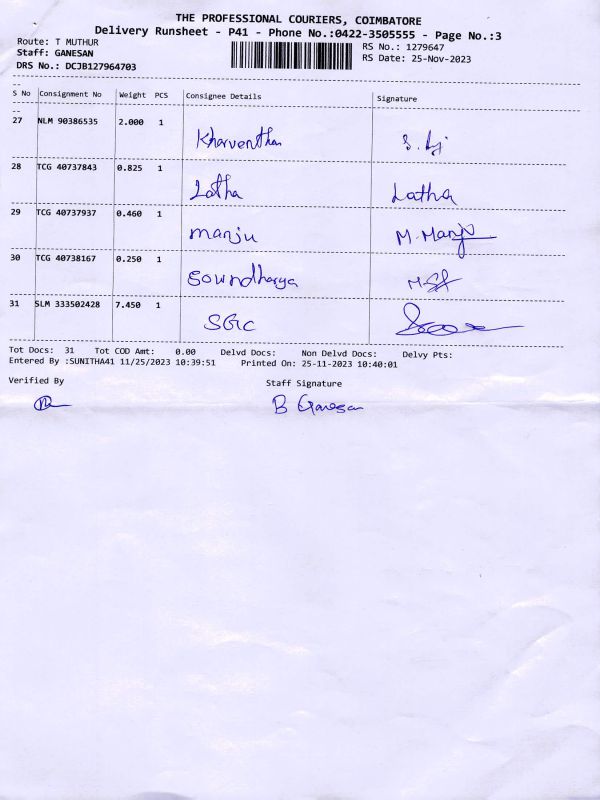 THE PROFESSIONAL COURIERS, COIMBATORE
Delivery Runsheet - P41 - Phone No.:0422-3505555 - Page No.:3
Route: T MUTHUR RS No.: 1279647
Staff: GANESAN RS Date: 25-Nov-2023
DRS No.: DCJB127964703
S No Consignment No Weight PCS Consignee Details Signature
27 NLM 90386535 2.000 1
Kharventhan
28 TCG 40737843 0.825 1
Latha Latha
29 TCG 40737937 0.460 1
manju M. Manju
30 TCG 40738167 0.250 1
Soundharya
31 SLM 333502428 7.450 1
SGC
Tot Docs: 31 Tot COD Amt: 0.00 Delvd Docs: Non Delvd Docs: Delvy Pts:
Entered By :SUNITHA41 11/25/2023 10:39:51 Printed On: 25-11-2023 10:40:01
Verified By Staff Signature
B Ganesan